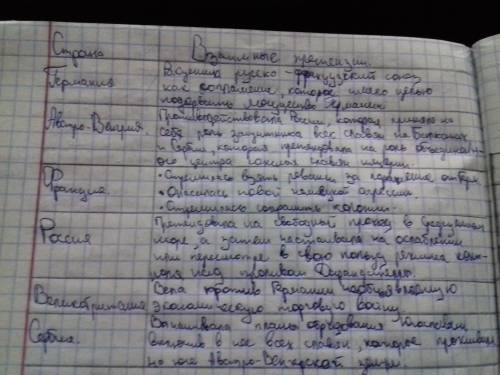 Страна Взаимные претензии.
Германия Видница русско-французский союз
как соглашение, которое имело целью
подорвать могущество Германии
Австро-Венгрия. Противодействовала России, которая приняла на
себя роль защитника всех славян на Балканах
и Сербии, которая претендовала на роль
центра южных славян империи.
Франция • Стремилась взять реванш за поражение
• Опасалась новой немецкой агрессии.
• Стремилась сохранить колонии.
Россия Претендовала на свободный проход в Средиземное
море, а затем настаивала на ослаблении
или пересмотре в свою пользу режима конт-
роля над проливом Дарданеллы.
Великобритания Вела против Германии
экономическую торговую войну.
Сербия. Вынашивала планы образования Югославии,
включив в нее всех славян, которое проживали
на юге Австро-Венгерской империи.